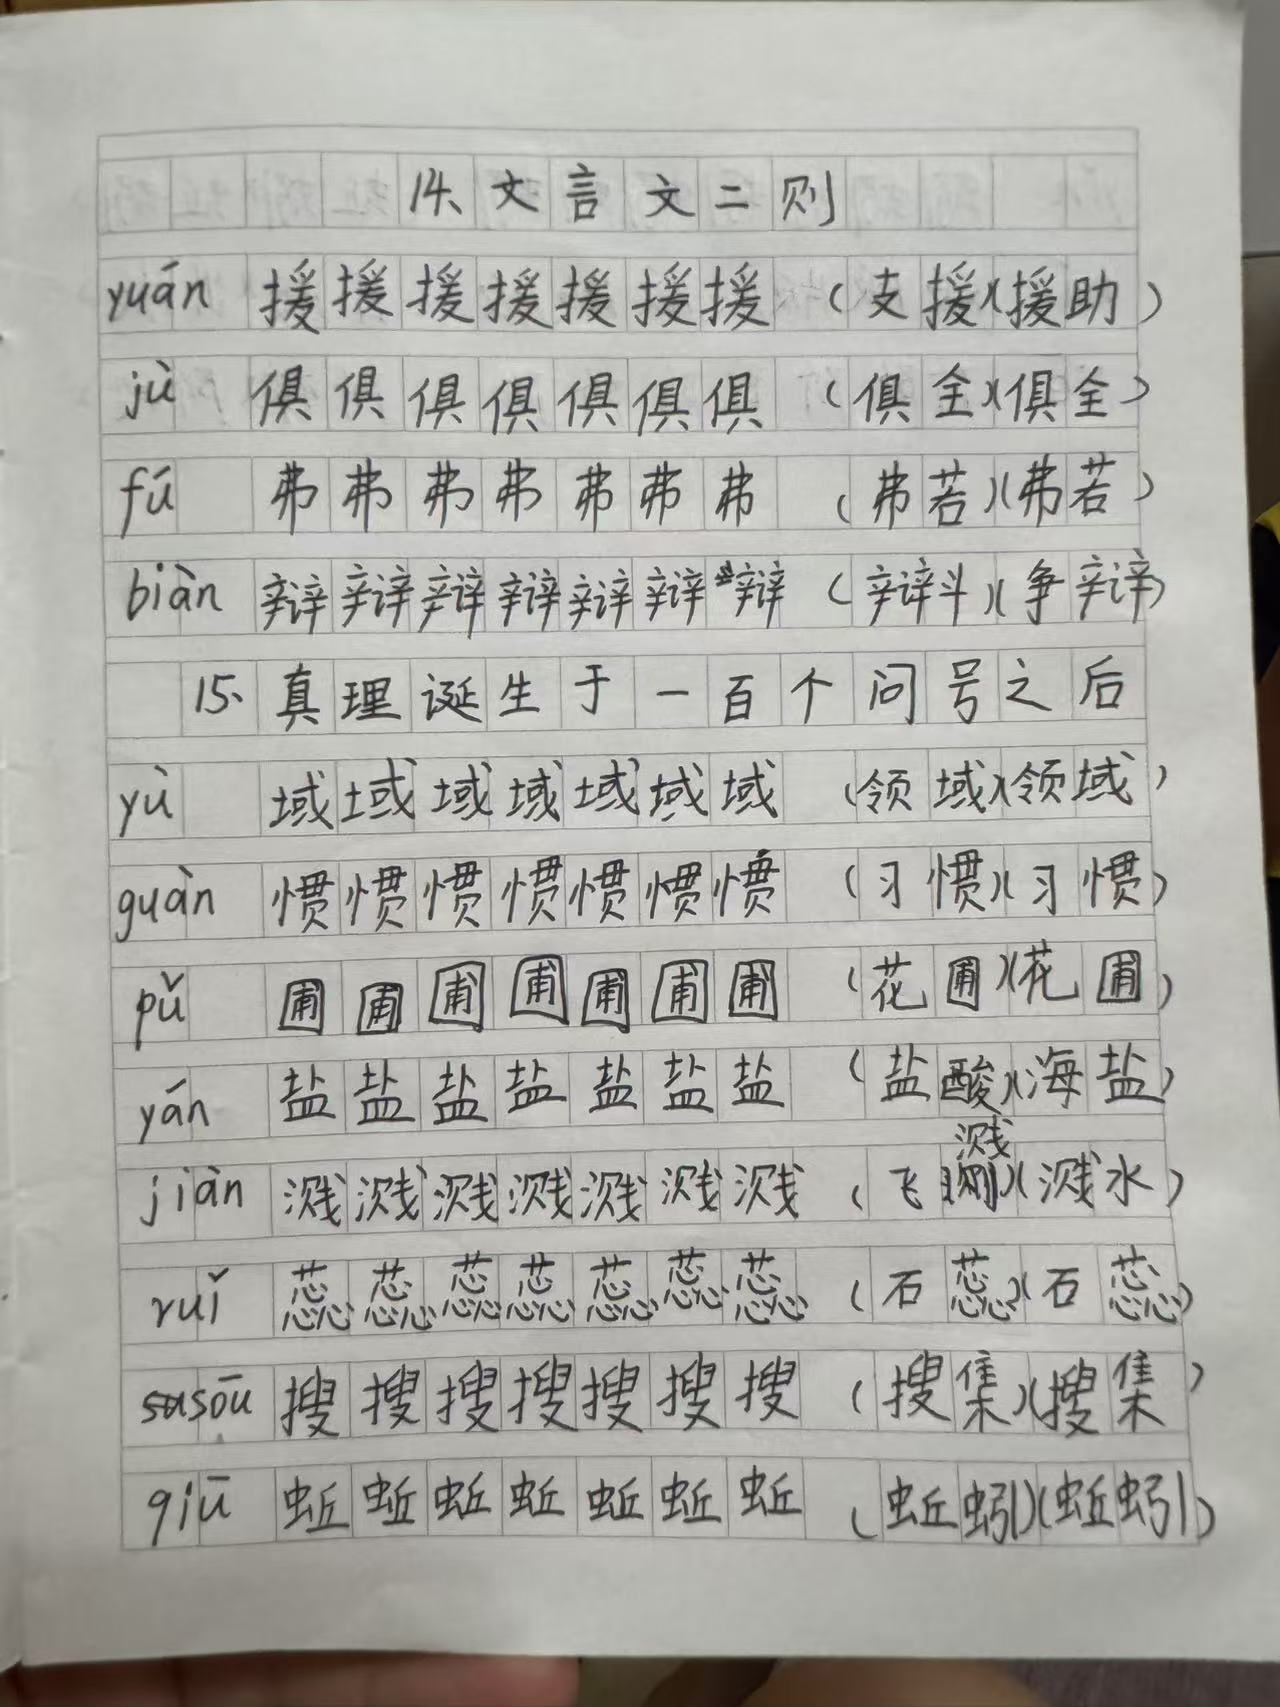 14、文言文二则
yuán 援援援援援援援（支援）（援助）
jù 俱俱俱俱俱俱俱（俱全）（俱全）
fú 弗弗弗弗弗弗弗（弗若）（弗若）
biàn 辩辩辩辩辩辩辩（辩斗）（争辩）
15、真理诞生于一百个问号之后
yù 域域域域域域域（领域）（领域）
guàn 惯惯惯惯惯惯惯（习惯）（习惯）
pǔ 圃圃圃圃圃圃圃（花圃）（花圃）
yán 盐盐盐盐盐盐盐（盐酸）（海盐）
jiàn 溅溅溅溅溅溅溅（飞溅）（溅水）
ruǐ 蕊蕊蕊蕊蕊蕊蕊（石蕊）（石蕊）
sōu 搜搜搜搜搜搜搜（搜集）（搜集）
qiū 蚯蚯蚯蚯蚯蚯蚯（蚯蚓）（蚯蚓）